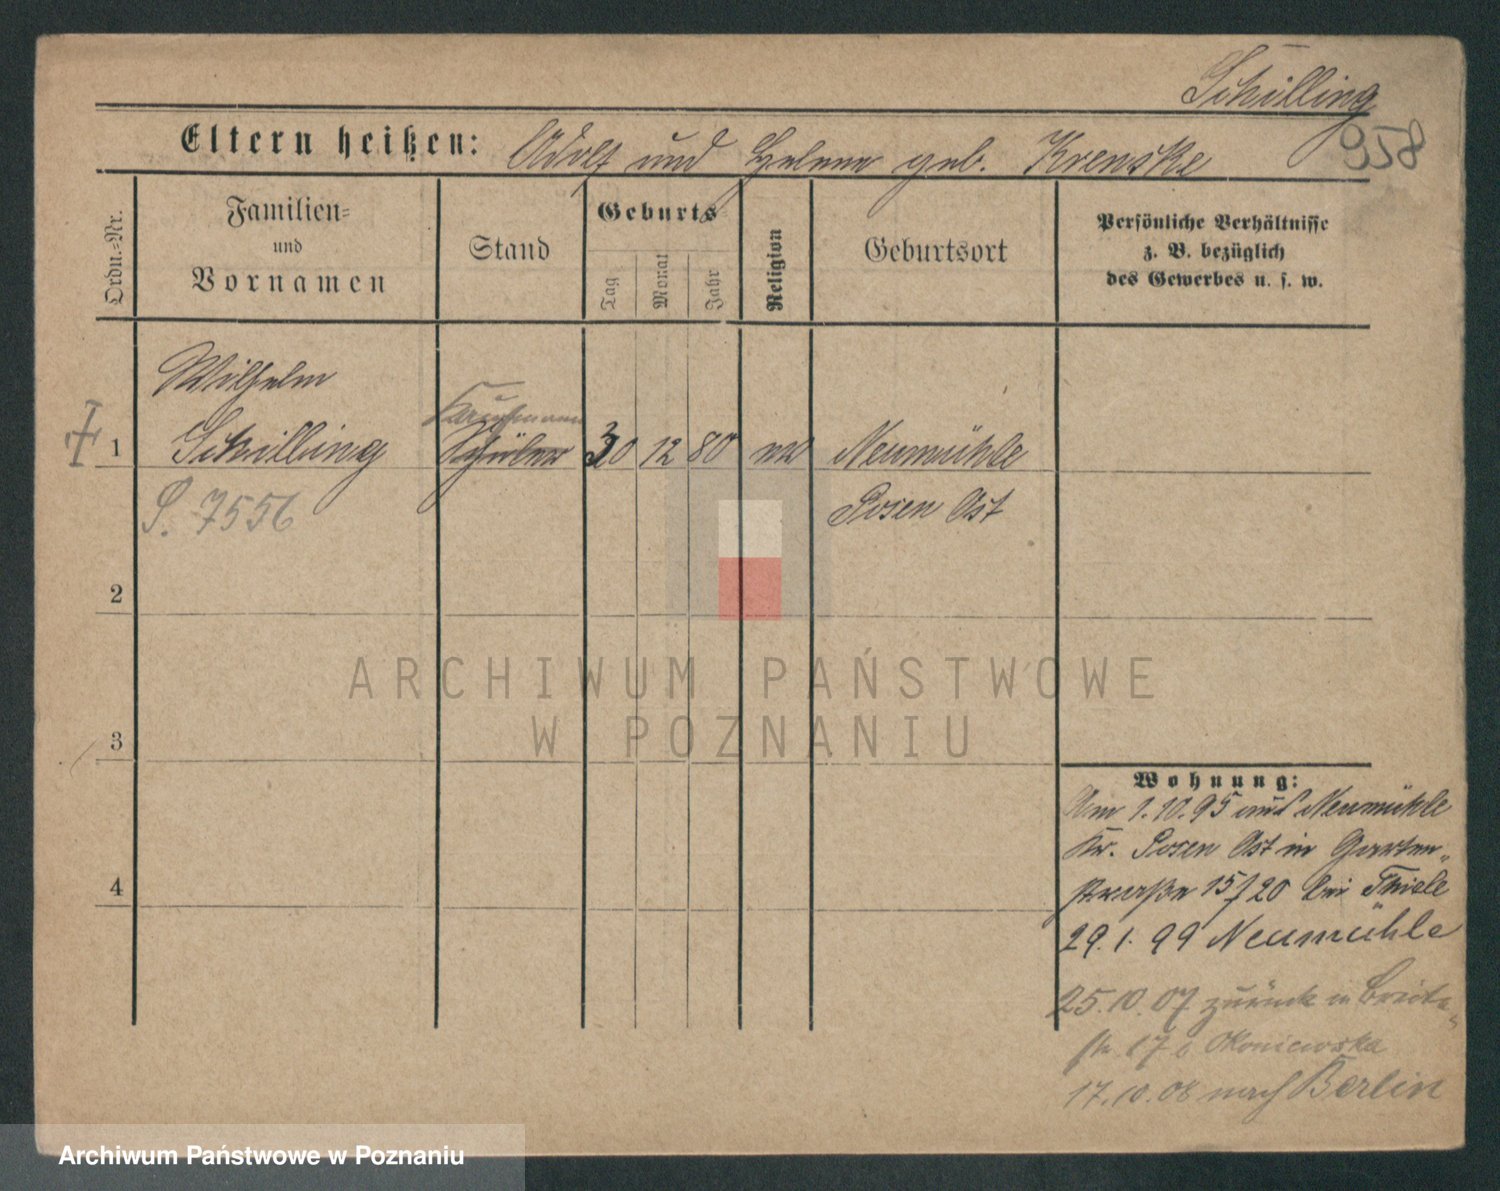 Schilling
958
Eltern heißen: Adolf und Helene geb. Krenske
Ordn.-Nr.
Familien-
und
Vornamen
Stand
Geburts
Tag
Monat
Jahr
Religion
Geburtsort
Persönliche Verhältnisse
z. B. bezüglich
des Gewerbes u. s. w.
Wilhelm
Kaufmann
1 Schilling Schüler 30 12 80 Neumühle
S. 7556 Posen Ost
2
3
4
Wohnung:
Am 1.10.95 aus Neumühle
Kr. Posen Ost in Garten-
straße 15/20 bei Thiele
29.1.99 Neumühle
25.10.07 zurück in Breite-
str. 17 b Okoniewska
17.10.08 nach Berlin
ARCHIWUM PAŃSTWOWE
W POZNANIU
Archiwum Państwowe w Poznaniu